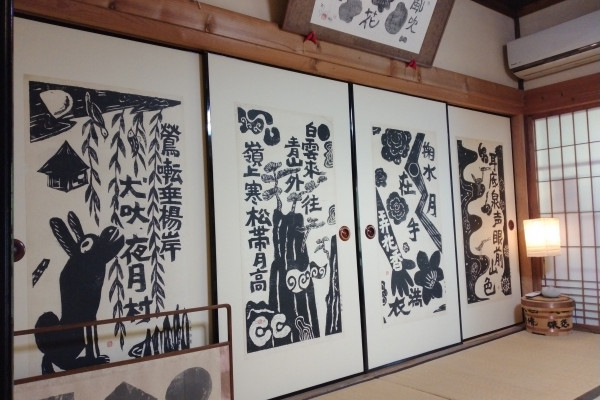 鶯囀垂楊岸
犬吠夜月村
白雲来往
青山外
嶺上寒松帯月高
掬水月
在手
弄花香
満衣
耳底泉声眼前山色
吹
花